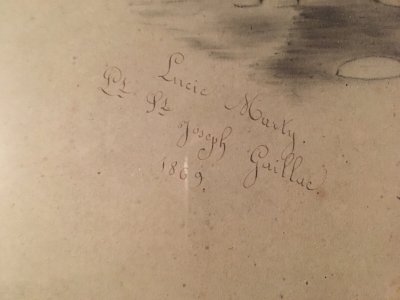 Lucie Marty.
Pt St Joseph Gaillac.
1869.